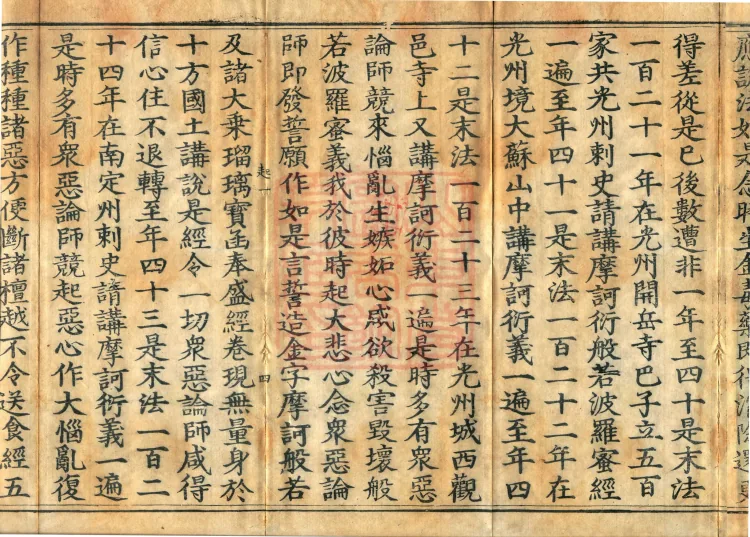 得差從是已後數遭非一年至四十是末法
一百二十一年在光州開岳寺巴子立五百
家共光州刺史請講摩訶衍般若波羅蜜經
一遍至年四十一是末法一百二十二年在
光州境大蘇山中講摩訶衍義一遍至年四
十二是末法一百二十三年在光州城西觀
邑寺上又講摩訶衍義一遍是時多有眾惡
論師競來惱亂生嫉妬心咸欲殺害毀壞般
若波羅蜜義我於彼時起大悲心念眾惡論
師即發誓願作如是言誓造金字摩訶般若
及諸大乗瑠璃寶函奉盛經卷現無量身於
十方國土講說是經令一切眾惡論師咸得
信心住不退轉至年四十三是末法一百二
十四年在南定州刺史請講摩訶衍義一遍
是時多有眾惡論師競起惡心作大惱亂復
作種種諸惡方便斷諸檀越不令送食經五
起一
四